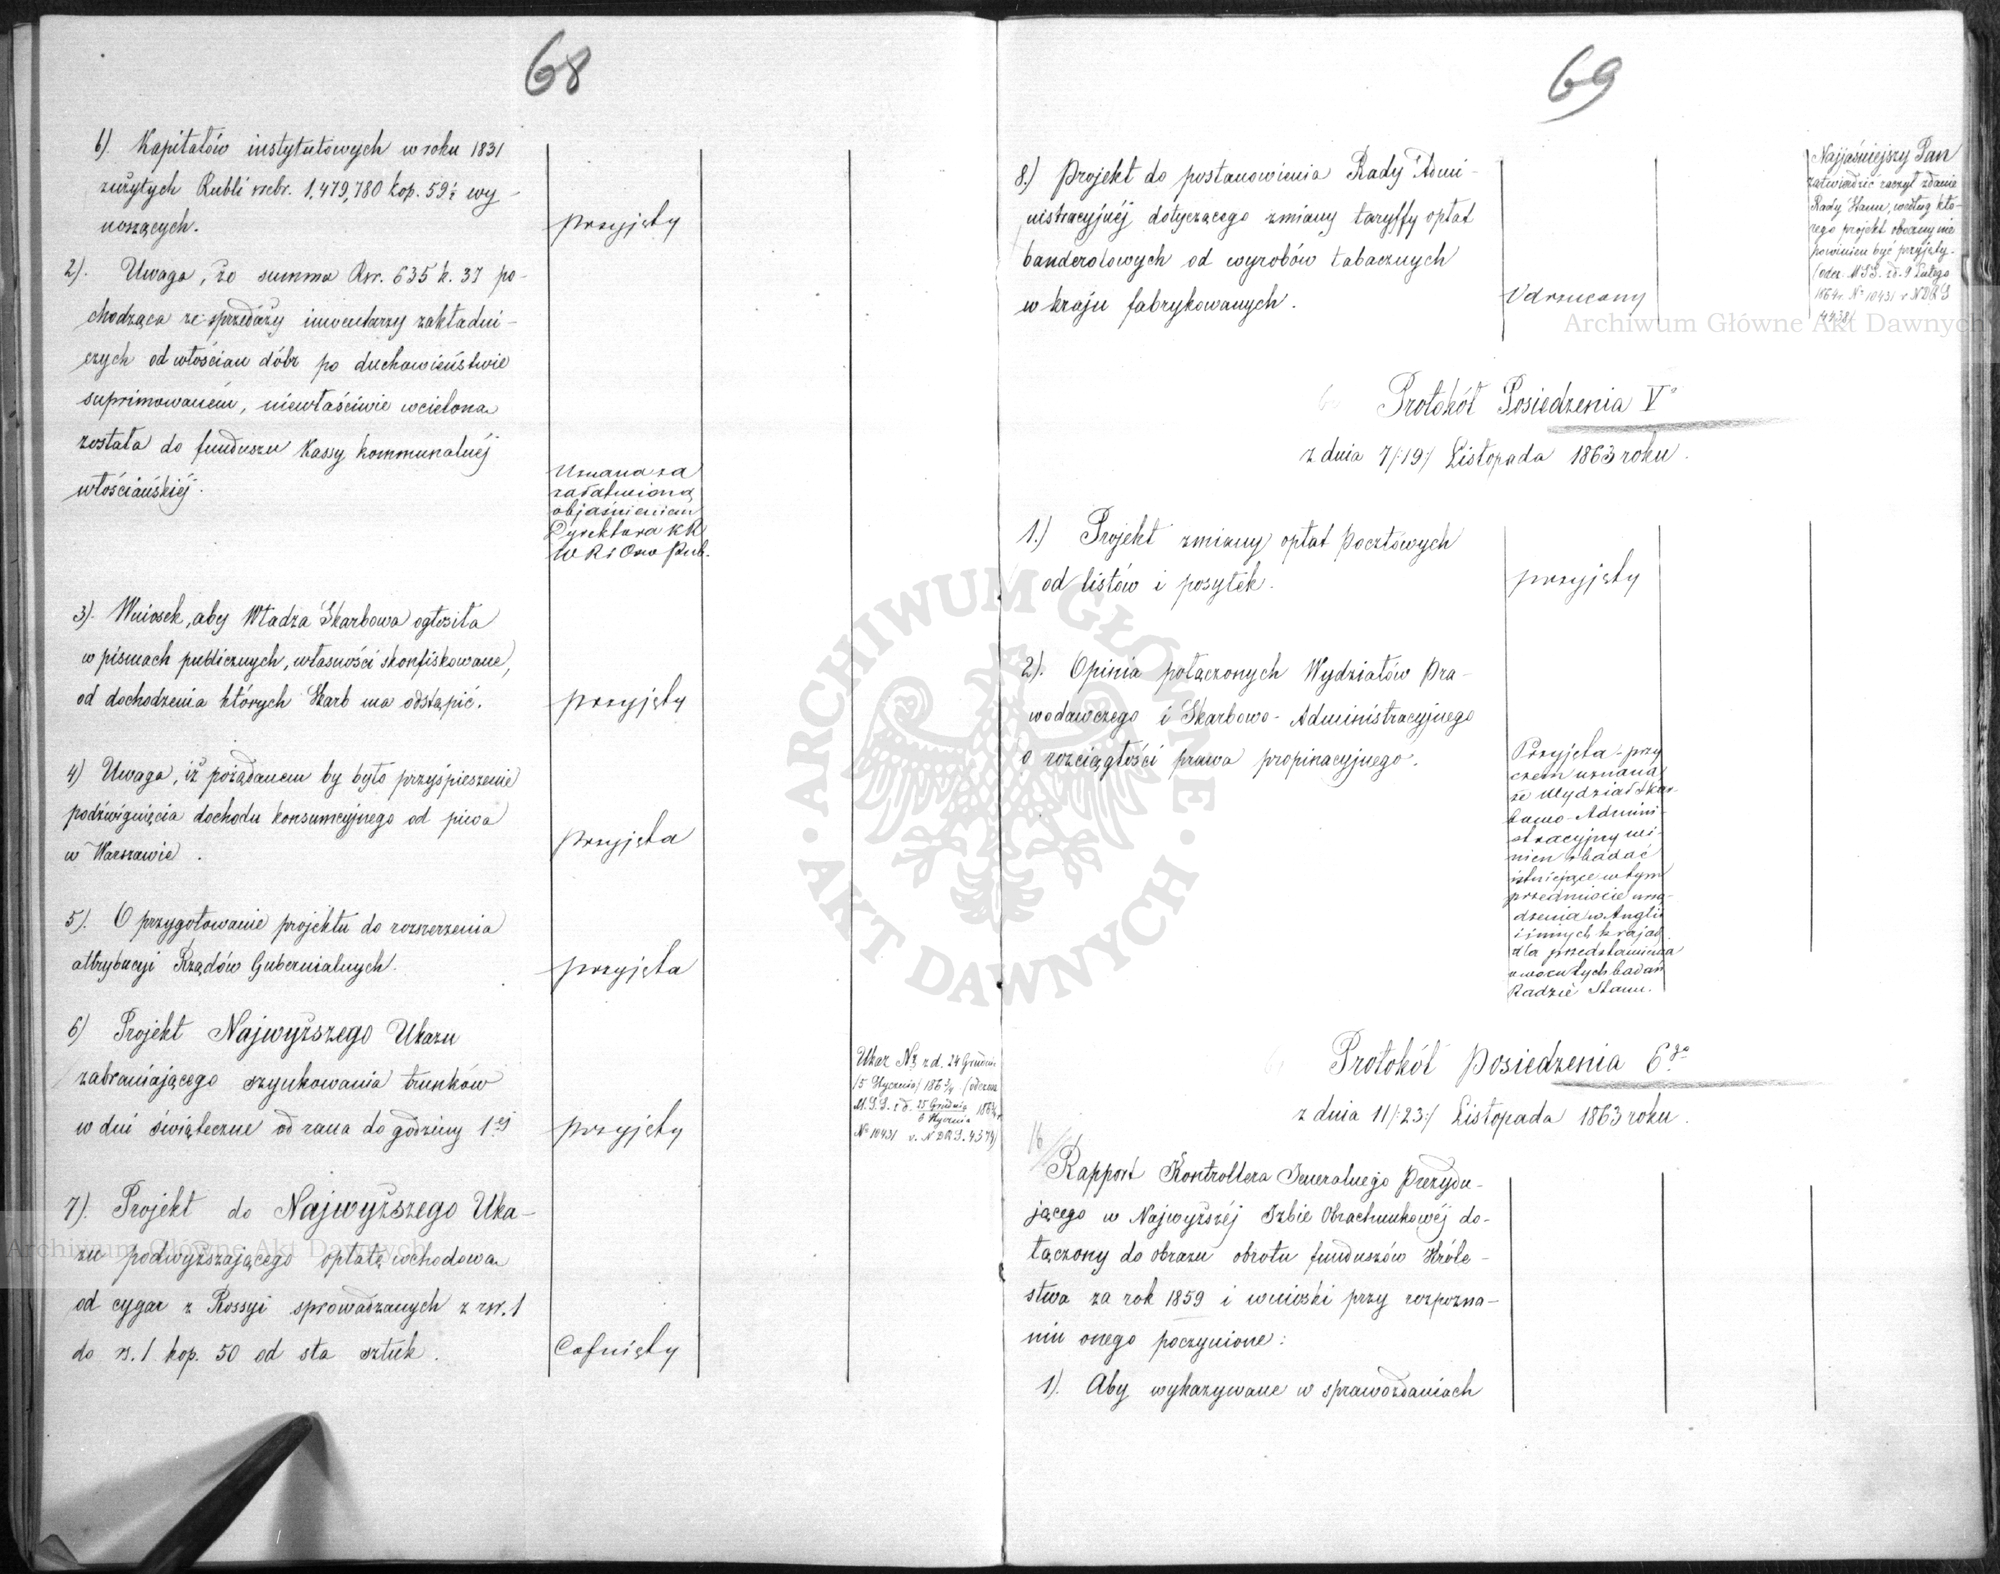 68
b). Kapitałów instytutowych w roku 1831
zużytych Rubli srebr. 1,479,780 kop. 59½ wy-
noszących.
przyjęty
2). Uwaga, że summa Rsr. 635 k. 37 po-
chodząca ze sprzedaży inwentarzy zakładni-
czych od włościan dóbr po duchowieństwie
suprimowaném, niewłaściwie wcielona
została do funduszu Kassy kommunalnéj
włościańskiéj.
Uznana za
załatwioną
objaśnieniem
Dyrektora KR
W R i Ośw Pub.
3). Wniosek, aby Władza Skarbowa ogłosiła
w pismach publicznych, własności skonfiskowane,
od dochodzenia których Skarb ma odstąpić.
przyjęty
4) Uwaga, iż pożądanem by było przyśpieszenie
podźwignięcia dochodu konsumcyjnego od piwa
w Warszawie.
przyjęta
5). O przygotowanie projektu do rozszerzenia
attrybucyi Rządów Gubernialnych.
przyjęta
6) Projekt Najwyższego Ukazu
zabraniającego szynkowania trunków
w dni świąteczne od rana do godziny 1éj
przyjęty
Ukaz Nż z d. 24 Grudnia
/5 Stycznia/ 1863/4 (odezwa
M.S.S. z d. 25 Grudnia 1863/4 r
6 Stycznia
No 10431 v. N D R S. 4379)
7). Projekt do Najwyższego Uka-
zu podwyższającego opłatę wchodową
od cygar z Rossyi sprowadzanych z rsr. 1
do rs. 1 kop. 50 od sta sztuk.
Cofnięty
69
8.) Projekt do postanowienia Rady Admi-
nistracyjnéj dotyczącego zmiany taryffy opłat
banderolowych od wyrobów tabacznych
w kraju fabrykowanych.
Odrzucony
Najjaśniejszy Pan
zatwierdzić raczył zdanie
Rady Stanu, według któ-
rego projekt obecny nie
powinien być przyjęty.
(odez. M S S. z d. 9 Lutego
1864 r. No 10431 v N D R S
4438)
Protokół Posiedzenia Vo
z dnia 7/:19:/ Listopada 1863 roku.
1.) Projekt zmiany opłat Pocztowych
od listów i posyłek.
przyjęty
2). Opinia połączonych Wydziałów Pra-
wodawczego i Skarbowo-Administracyjnego
o rozciągłości prawa propinacyjnego.
Przyjęta - przy
czem uznano
że Wydział Skar-
bowo-Admini-
stracyjny wi-
nien zbadać
istniejące w tym
przedmiocie urzą-
dzenia w Anglii
i innych krajach
dla przedstawienia
owocu tych badań
Radzie Stanu.
Protokół Posiedzenia 6go
z dnia 11/:23:/ Listopada 1863 roku.
Rapport Kontrollera Jeneralnego Prezydu-
jącego w Najwyższéj Izbie Obrachunkowéj do-
łączony do obrazu obrotu funduszów Króle-
stwa za rok 1859 i wnioski przy rozpozna-
niu onego poczynione:
1). Aby wykazywane w sprawozdaniach
Archiwum Główne Akt Dawnych
Archiwum Główne Akt Dawnych
ARCHIWUM GŁÓWNE · AKT DAWNYCH ·